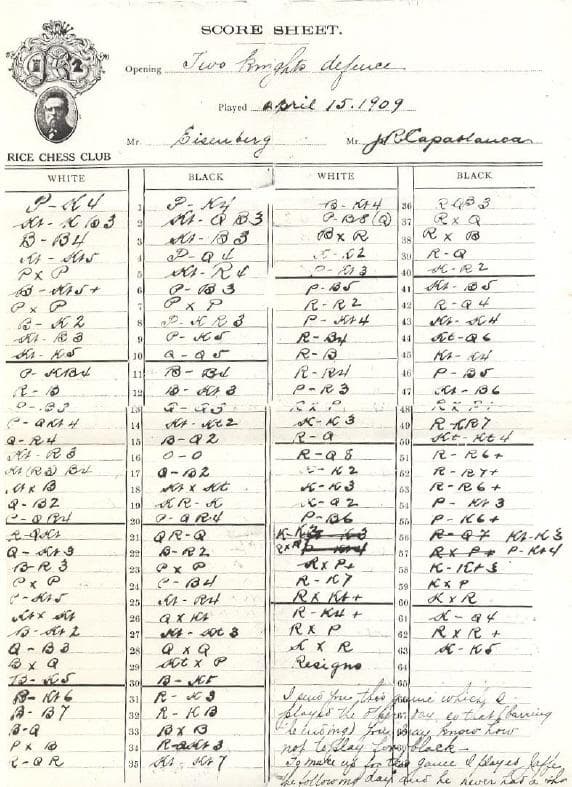 SCORE SHEET.
Opening Two Knights defence
Played April 15. 1909
Mr. Eisenberg Mr. J R Capablanca
RICE CHESS CLUB
WHITE BLACK WHITE BLACK
P-K4 1 P-K4 B-Kt4 36 R-QB3
Kt-KB3 2 Kt-QB3 P-B8(Q) 37 R x Q
B-B4 3 Kt-B3 B x R 38 R x B
Kt-Kt5 4 P-Q4 K-K2 39 R-Q
P x P 5 Kt-R4 P-Kt3 40 K-R2
B-Kt5+ 6 P-B3 P-B5 41 Kt-B5
P x P 7 P x P R-R2 42 R-Q4
B-K2 8 P-KR3 P-Kt4 43 Kt-K4
Kt-B3 9 P-K5 R-B4 44 Kt-Q6
Kt-K5 10 Q-Q5 R-B 45 Kt-K4
P-KB4 11 B-B4 R-R4 46 P-B5
R-B 12 B-Kt3 P-R3 47 Kt-B6
P-B3 13 Q-Q3 R x P 48 R x P+
P-QKt4 14 Kt-Kt2 K-K3 49 R-KR7
Q-R4 15 B-Q2 R-Q 50 Kt-Kt4
Kt-R3 16 O-O R-Q8 51 R-R6+
Kt(R3) B4 17 Q-B2 K-K2 52 R-R7+
Kt x B 18 Kt x Kt K-K3 53 R-R6+
Q-B2 19 KR-K K-Q2 54 P-Kt3
P-QR4 20 P-QR4 P-B6 55 P-K6+
R-QKt 21 QR-Q K-K2 K-K3 56 R-Q7 Kt-K3
Q-Kt3 22 B-R2 R x R P-Kt4 57 R x P+ P-Kt4
B-R3 23 P x P R x P+ 58 K-Kt3
P x P 24 P-B4 R-K7 59 K x P
P-Kt5 25 Kt-R4 R x Kt+ 60 K x R
Kt x Kt 26 Q x Kt R-K4+ 61 K-Q4
B-Kt2 27 Kt-Kt3 R x P 62 R x R+
Q-B3 28 Q x Q K x R 63 K-K5
B x Q 29 Kt x P Resigns 64
B-K5 30 B-K5 65
B-Kt6 31 R-K3 I send you this game which I
B-B7 32 R-KB played the other day, so that (barring
B-Q 33 B x B you may know how
P x B 34 R-Kt3 not to play black
R-QR 35 Kt-Kt7 To make up for this game I played Jaffe
the following day and he never had a